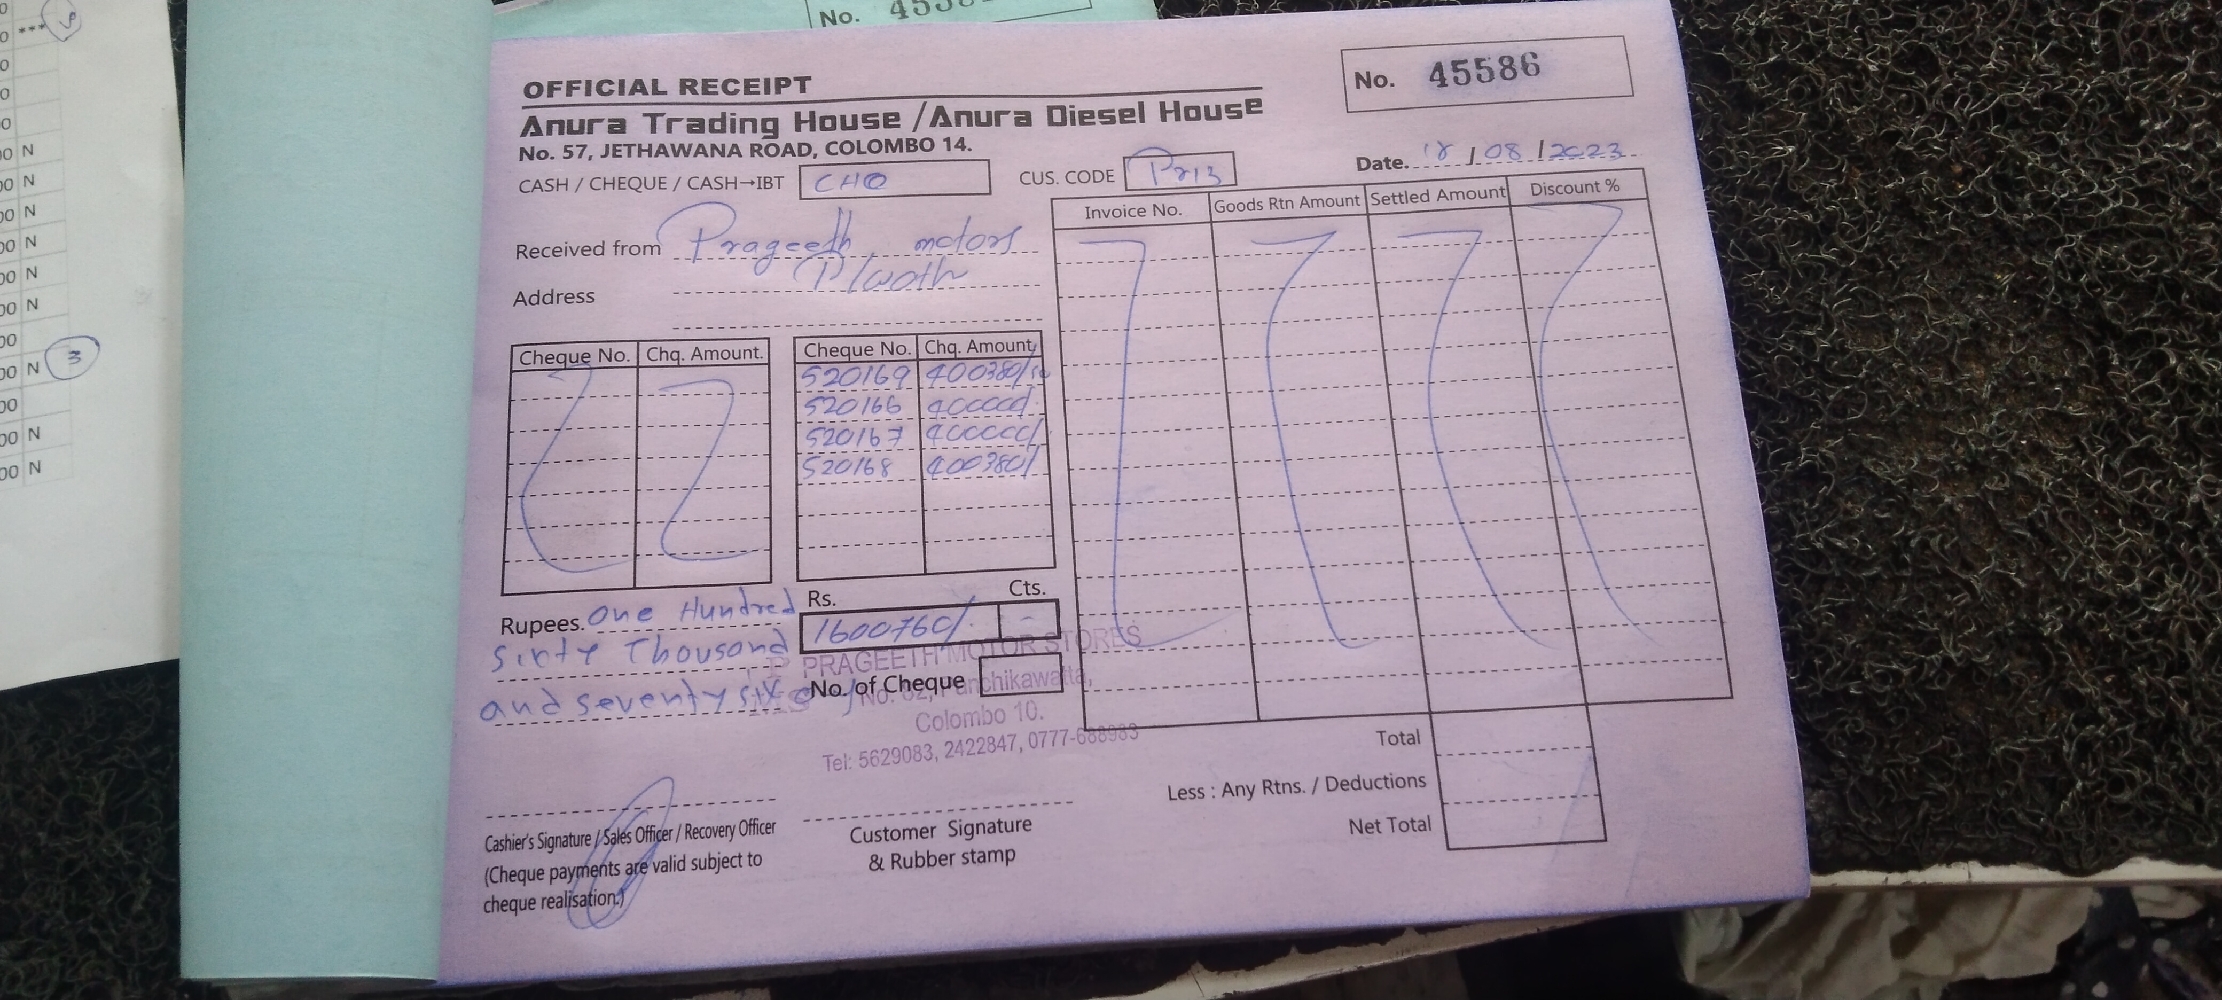 No.
OFFICIAL RECEIPT
No. 45586
Anura Trading House / Anura Diesel House
No. 57, JETHAWANA ROAD, COLOMBO 14.
Date. 18 / 08 / 2023
CASH / CHEQUE / CASH→IBT CHQ CUS. CODE Pr13
Invoice No. Goods Rtn Amount Settled Amount Discount %
Received from Prageeth motors
Address
Cheque No. Chq. Amount. Cheque No. Chq. Amount
520169 400380/
520166 400000/
520167 400000/
520168 400380/
Rs. Cts.
Rupees. One Hundred
1600760/. -
Sixty Thousand
and seventy six
No. of Cheque
PRAGEETH MOTOR STORES
Panchikawatta,
Colombo 10.
Tel: 5629083, 2422847, 0777-688983
Total
Less : Any Rtns. / Deductions
Net Total
Cashier's Signature / Sales Officer / Recovery Officer
(Cheque payments are valid subject to
cheque realisation.)
Customer Signature
& Rubber stamp
N
N
N
N
N
N
N 3
N
N